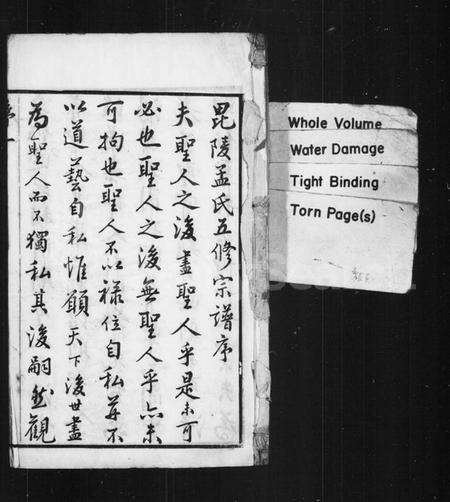 毘陵孟氏五修宗譜序
夫聖人之後盡聖人乎是未可
必也聖人之後無聖人乎亦未
可拘也聖人不以祿位自私并不
以道藝自私惟願天下後世盡
為聖人而不獨私其後嗣然觀
序
一
Whole Volume
Water Damage
Tight Binding
Torn Page(s)